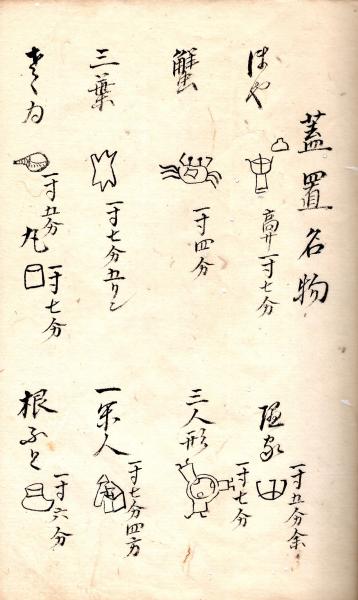 蓋置名物
ほや
高サ一寸七分
蟹
一寸四分
三葉
一寸七分五リン
さゝゐ
一寸五分
丸
一寸七分
隠家
一寸五分余
三人形
一寸七分
一閑人
一寸七分四方
根ふと
一寸六分